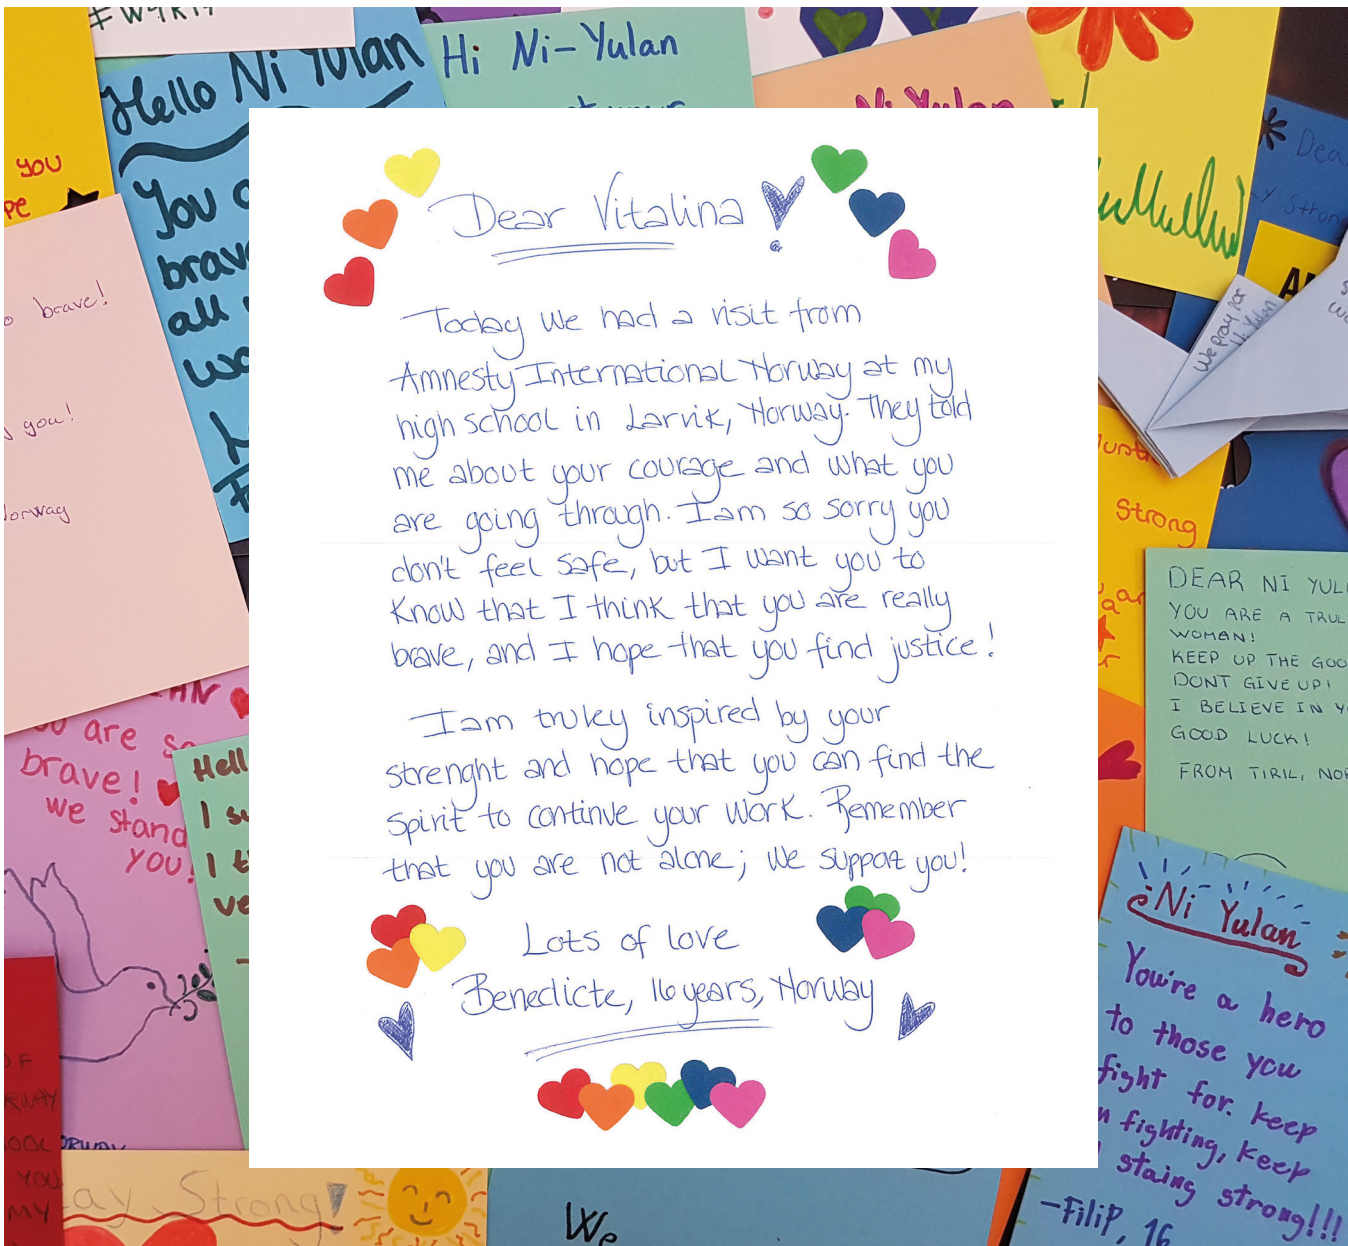 #W4R17
Hello Ni Yulan
You
brave
all
Hi Ni-Yulan
Ni Yulan
Dear
you
brave!
you!
Norway
Dear Vitalina
Today we had a visit from
Amnesty International Norway at my
high school in Larvik, Norway. They told
me about your courage and what you
are going through. I am so sorry you
don't feel safe, but I want you to
know that I think that you are really
brave, and I hope that you find justice!
I am truley inspired by your
strenght and hope that you can find the
spirit to continue your work. Remember
that you are not alone; we support you!
Lots of love
Benedicte, 16 years, Norway
We pray for
Ni Yulan
Strong
DEAR NI YUL
YOU ARE A TRUL
WOMAN!
KEEP UP THE GOO
DONT GIVE UP!
I BELIEVE IN Y
GOOD LUCK!
FROM TIRIL, NOR
are so
brave!
we stand
YOU!
Hell
I su
I t
ve
Ni Yulan
You're a hero
to those you
fight for. keep
fighting, keep
staing strong!!!
-Filip, 16
OF
RWAY
OOL
YOU
MY
ay Strong!
We